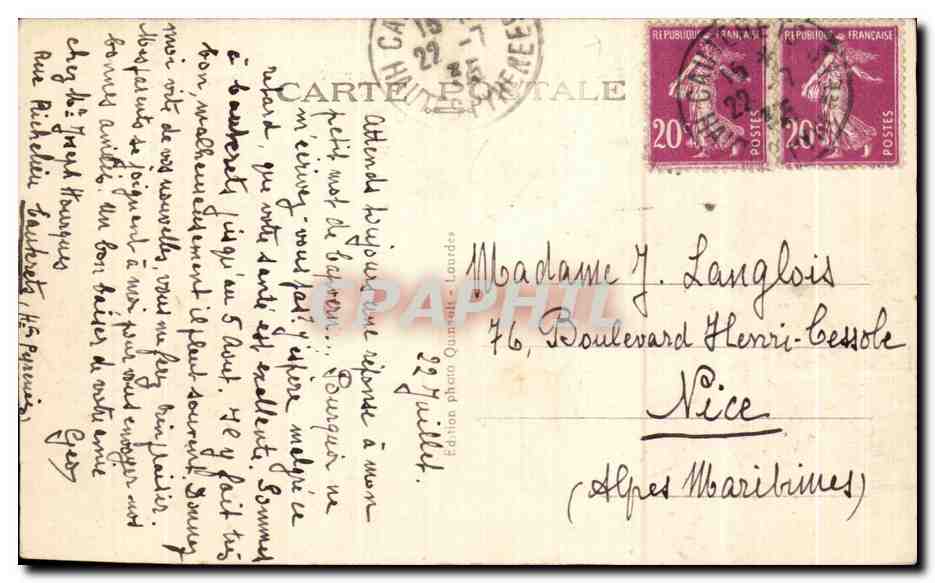 CARTE POSTALE
RÉPUBLIQUE FRANÇAISE
20c
POSTES
RÉPUBLIQUE FRANÇAISE
20c
POSTES
22 Juillet.
Attends toujours une réponse à mon
petit mot de Capvern... Pourquoi ne
m'écrivez-vous pas. J'espère malgré ce
retard, que votre santé est excellente. Sommes
à Cauterets jusqu'au 5 Aout. Il y fait très
bon, malheureusement il pleut souvent. Donnez
moi vite de vos nouvelles, vous me ferez bien plaisir.
Mes parents se joignent à moi pour vous envoyer nos
bonnes amitiés. Un bon baiser de votre amie
Geo
chez Mr Joseph Hourques
Rue Richelieu Cauterets, Htes Pyrénées
Edition photo Lourdes
Madame J. Langlois
76, Boulevard Henri-Cessole
Nice
(Alpes Maritimes)
CPAPHIL